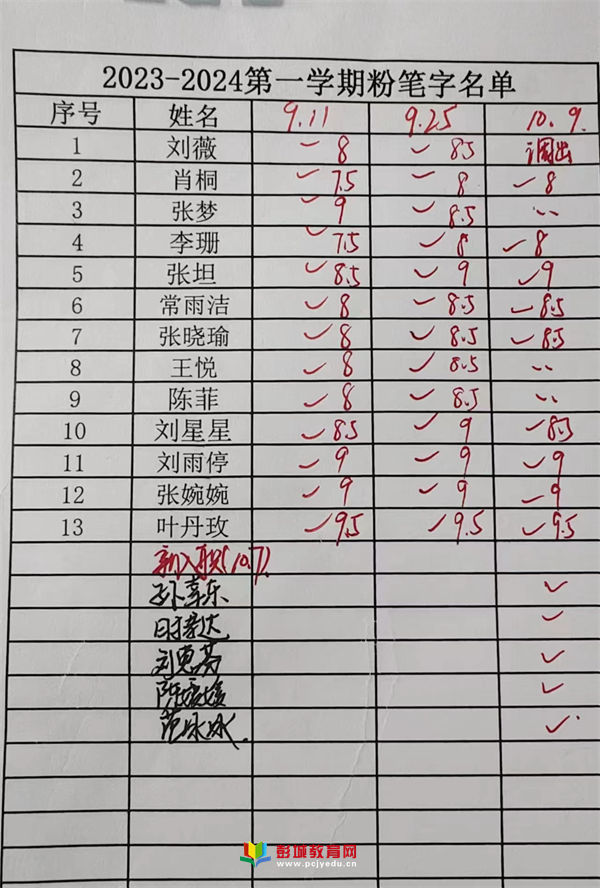 2023-2024第一学期粉笔字名单
序号 姓名 9.11 9.25 10.9.
1 刘薇 ✓8 ✓8.5 调出
2 肖桐 ✓7.5 ✓8 ✓8
3 张梦 ✓9 ✓8.5 ..
4 李珊 ✓7.5 ✓8 ✓8
5 张坦 ✓8.5 ✓9 ✓9
6 常雨洁 ✓8 ✓8.5 ✓8.5
7 张晓瑜 ✓8 ✓8.5 ✓8.5
8 王悦 ✓8 ✓8.5 ..
9 陈菲 ✓8 ✓8.5 ..
10 刘星星 ✓8.5 ✓9 ✓8.5
11 刘雨停 ✓9 ✓9 ✓9
12 张婉婉 ✓9 ✓9 ✓9
13 叶丹玫 ✓9.5 ✓9.5 ✓9.5
新入职(10.7)
孙喜乐 ✓
✓
✓
陈媛媛 ✓
范冰冰. ✓
彭城教育网
www.pcjyedu.cn